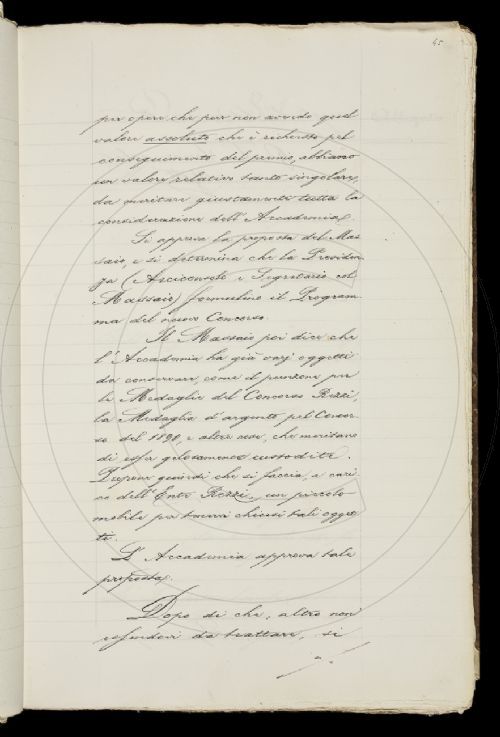 45
per opere che pur non avendo quel
valore assoluto che è richiesto pel
conseguimento del premio, abbiano
un valore relativo tanto singolare,
da meritare giustamente tutta la
considerazione dell'Accademia.
Si approva la proposta del Mas-
saio, e si determina che la Presiden-
za (Arciconsolo e Segretario col
Massaio) formulino il Program-
ma del nuovo Concorso.
Il Massaio poi dice che
l'Accademia ha già varj oggetti
da conservare, come il punzone per
le Medaglie del Concorso Rezzi,
la Medaglia d'argento pel Concor-
so del 1890, e altre cose, che meritano
di esser gelosamente custodite.
Propone quindi che si faccia, a cari-
co dell'Ente Rezzi, un piccolo
mobile per tenervi chiusi tali ogget-
ti.
L'Accademia approva tale
proposta.
Dopo di che, altro non
essendovi da trattare, si